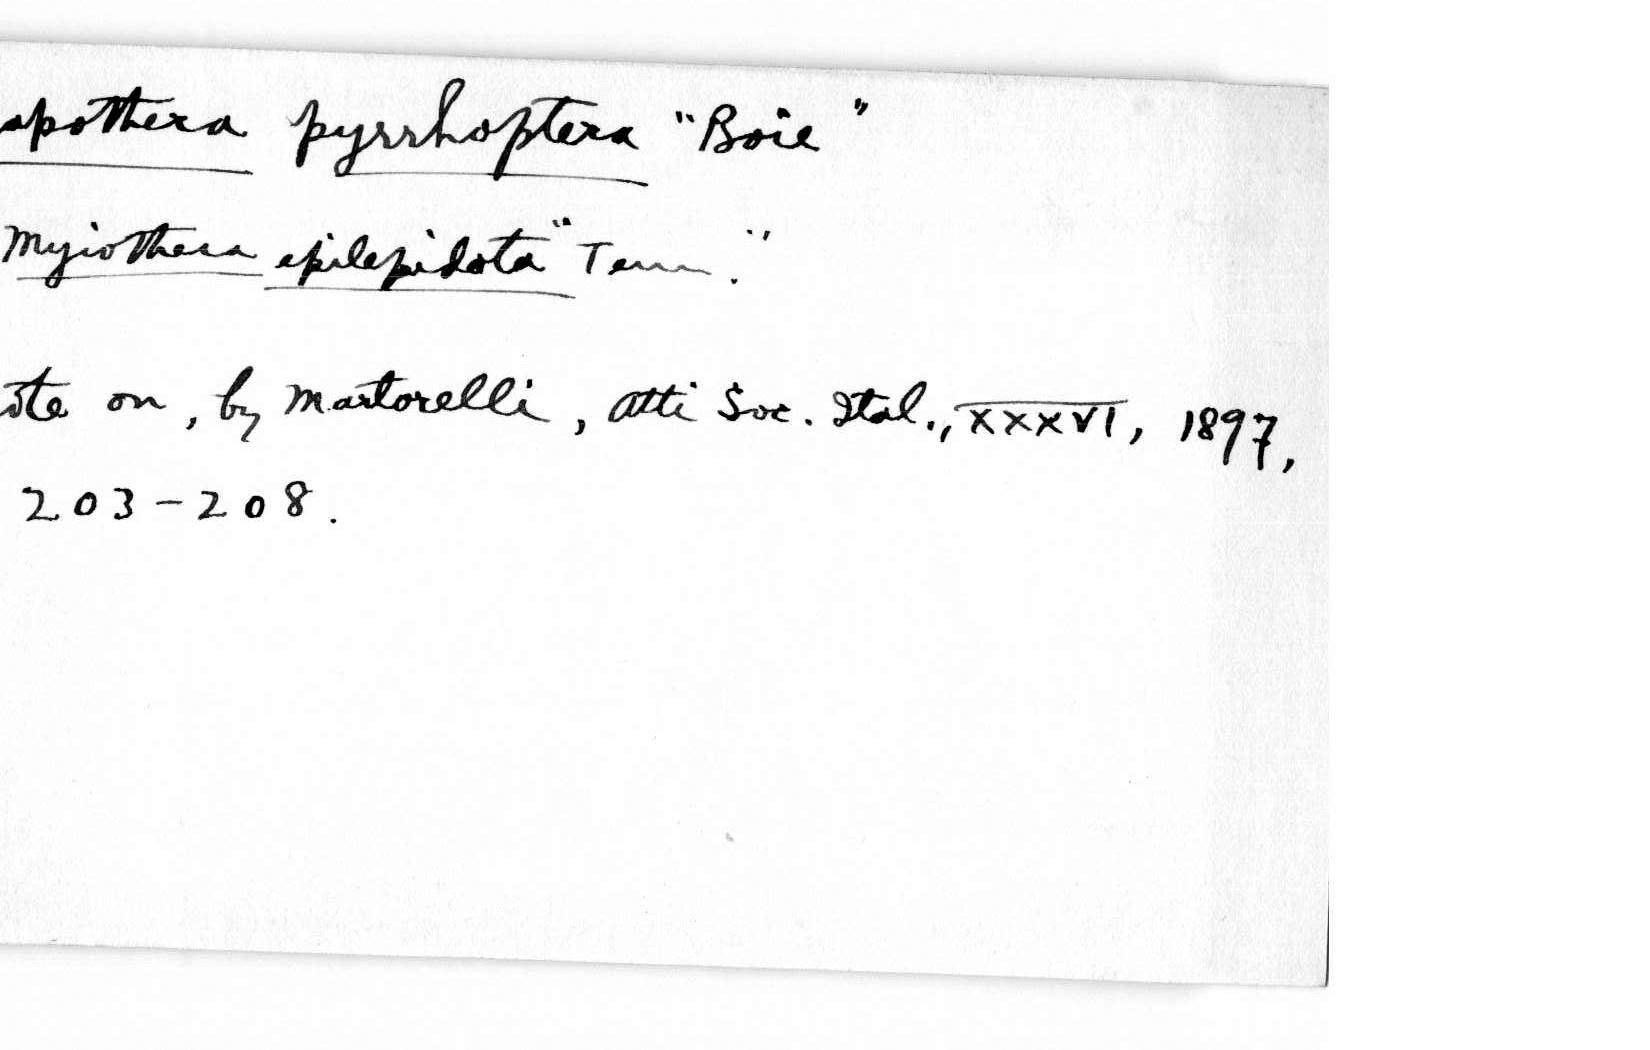 apothera pyrrhoptera "Boie"
Myiothera epilepidota "Tem."
ote on, by Martorelli, Atti Soc. Ital., XXXVI, 1897,
203-208.